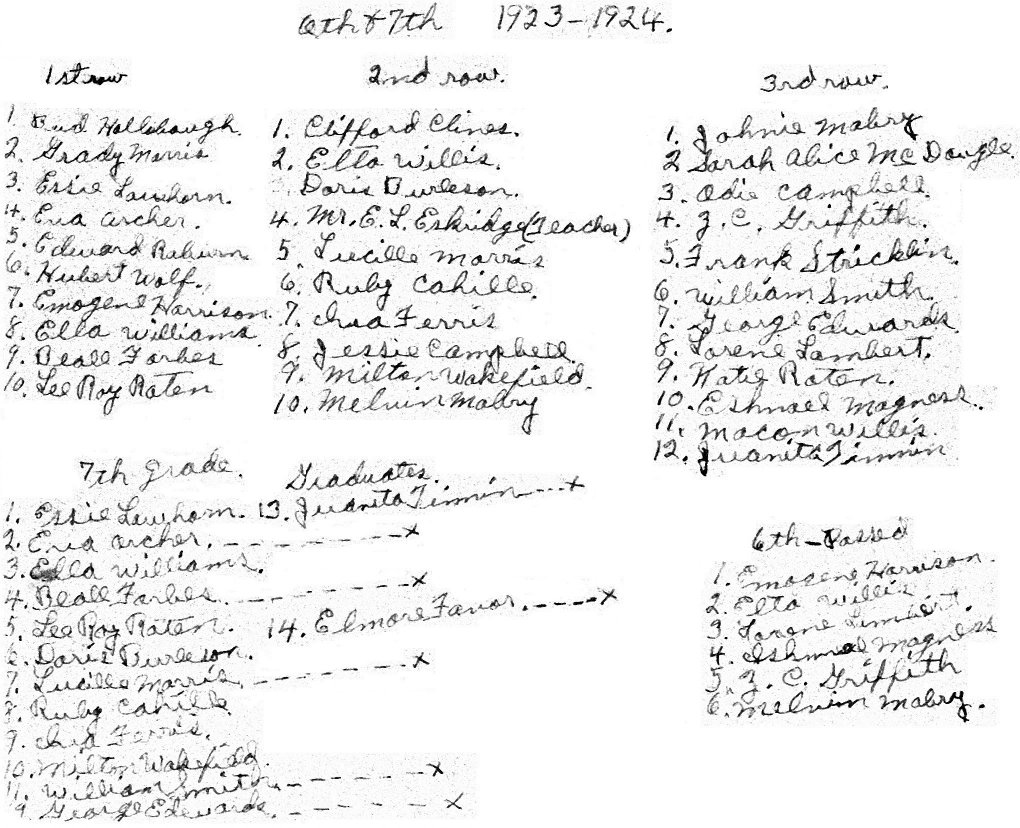 6th & 7th 1923-1924.
1st row
1. Bud Hollibaugh.
2. Grady Morris
3. Essie Lawhorn.
4. Eva Archer.
5. Edward Raburn
6. Hubert Wolf.
7. Emogene Harrison
8. Ella Williams
9. Beall Forbes
10. Lee Roy Raten
2nd row.
1. Clifford Clines.
2. Elta Willis.
3. Doris Burleson.
4. Mr. E. L. Eskridge (Teacher)
5. Lucille Morris
6. Ruby Cahille.
7. Ferris
8. Jessie Campbell.
9. Milton Wakefield.
10. Melvin Mabry
3rd row.
1. Johnie Mabry
2 Sarah Alice McDougle.
3. Odie Campbell
4. Z. C. Griffith.
5. Frank Stricklin.
6. William Smith.
7. George Edwards.
8. Lorene Lambert.
9. Katie Raten.
10. Eshmael Magness.
11. Macon Willis.
12. Juanita Timmin
7th Grade. Graduates.
1. Essie Lawhorn.
2. Eva Archer. - - - - - - - x
3. Ella Williams.
4. Beall Forbes. - - - - - - - x
5. Lee Roy Raten.
6. Doris Burleson.
7. Lucille Morris. - - - - - - - x
8. Ruby Cahille
9. Ferris.
10. Milton Wakefield.
11. William Smith. - - - - - - - x
9. George Edwards. - - - - - - x
13. Juanita Timmin - - - x
14. Elmore Favor. - - - - - x
6th-Passed
1. Emogene Harrison.
2. Elta Willis
3. Lorene Limbert.
4. Ishmael Magness
5. Z. C. Griffith
6. Melvin Mabry.